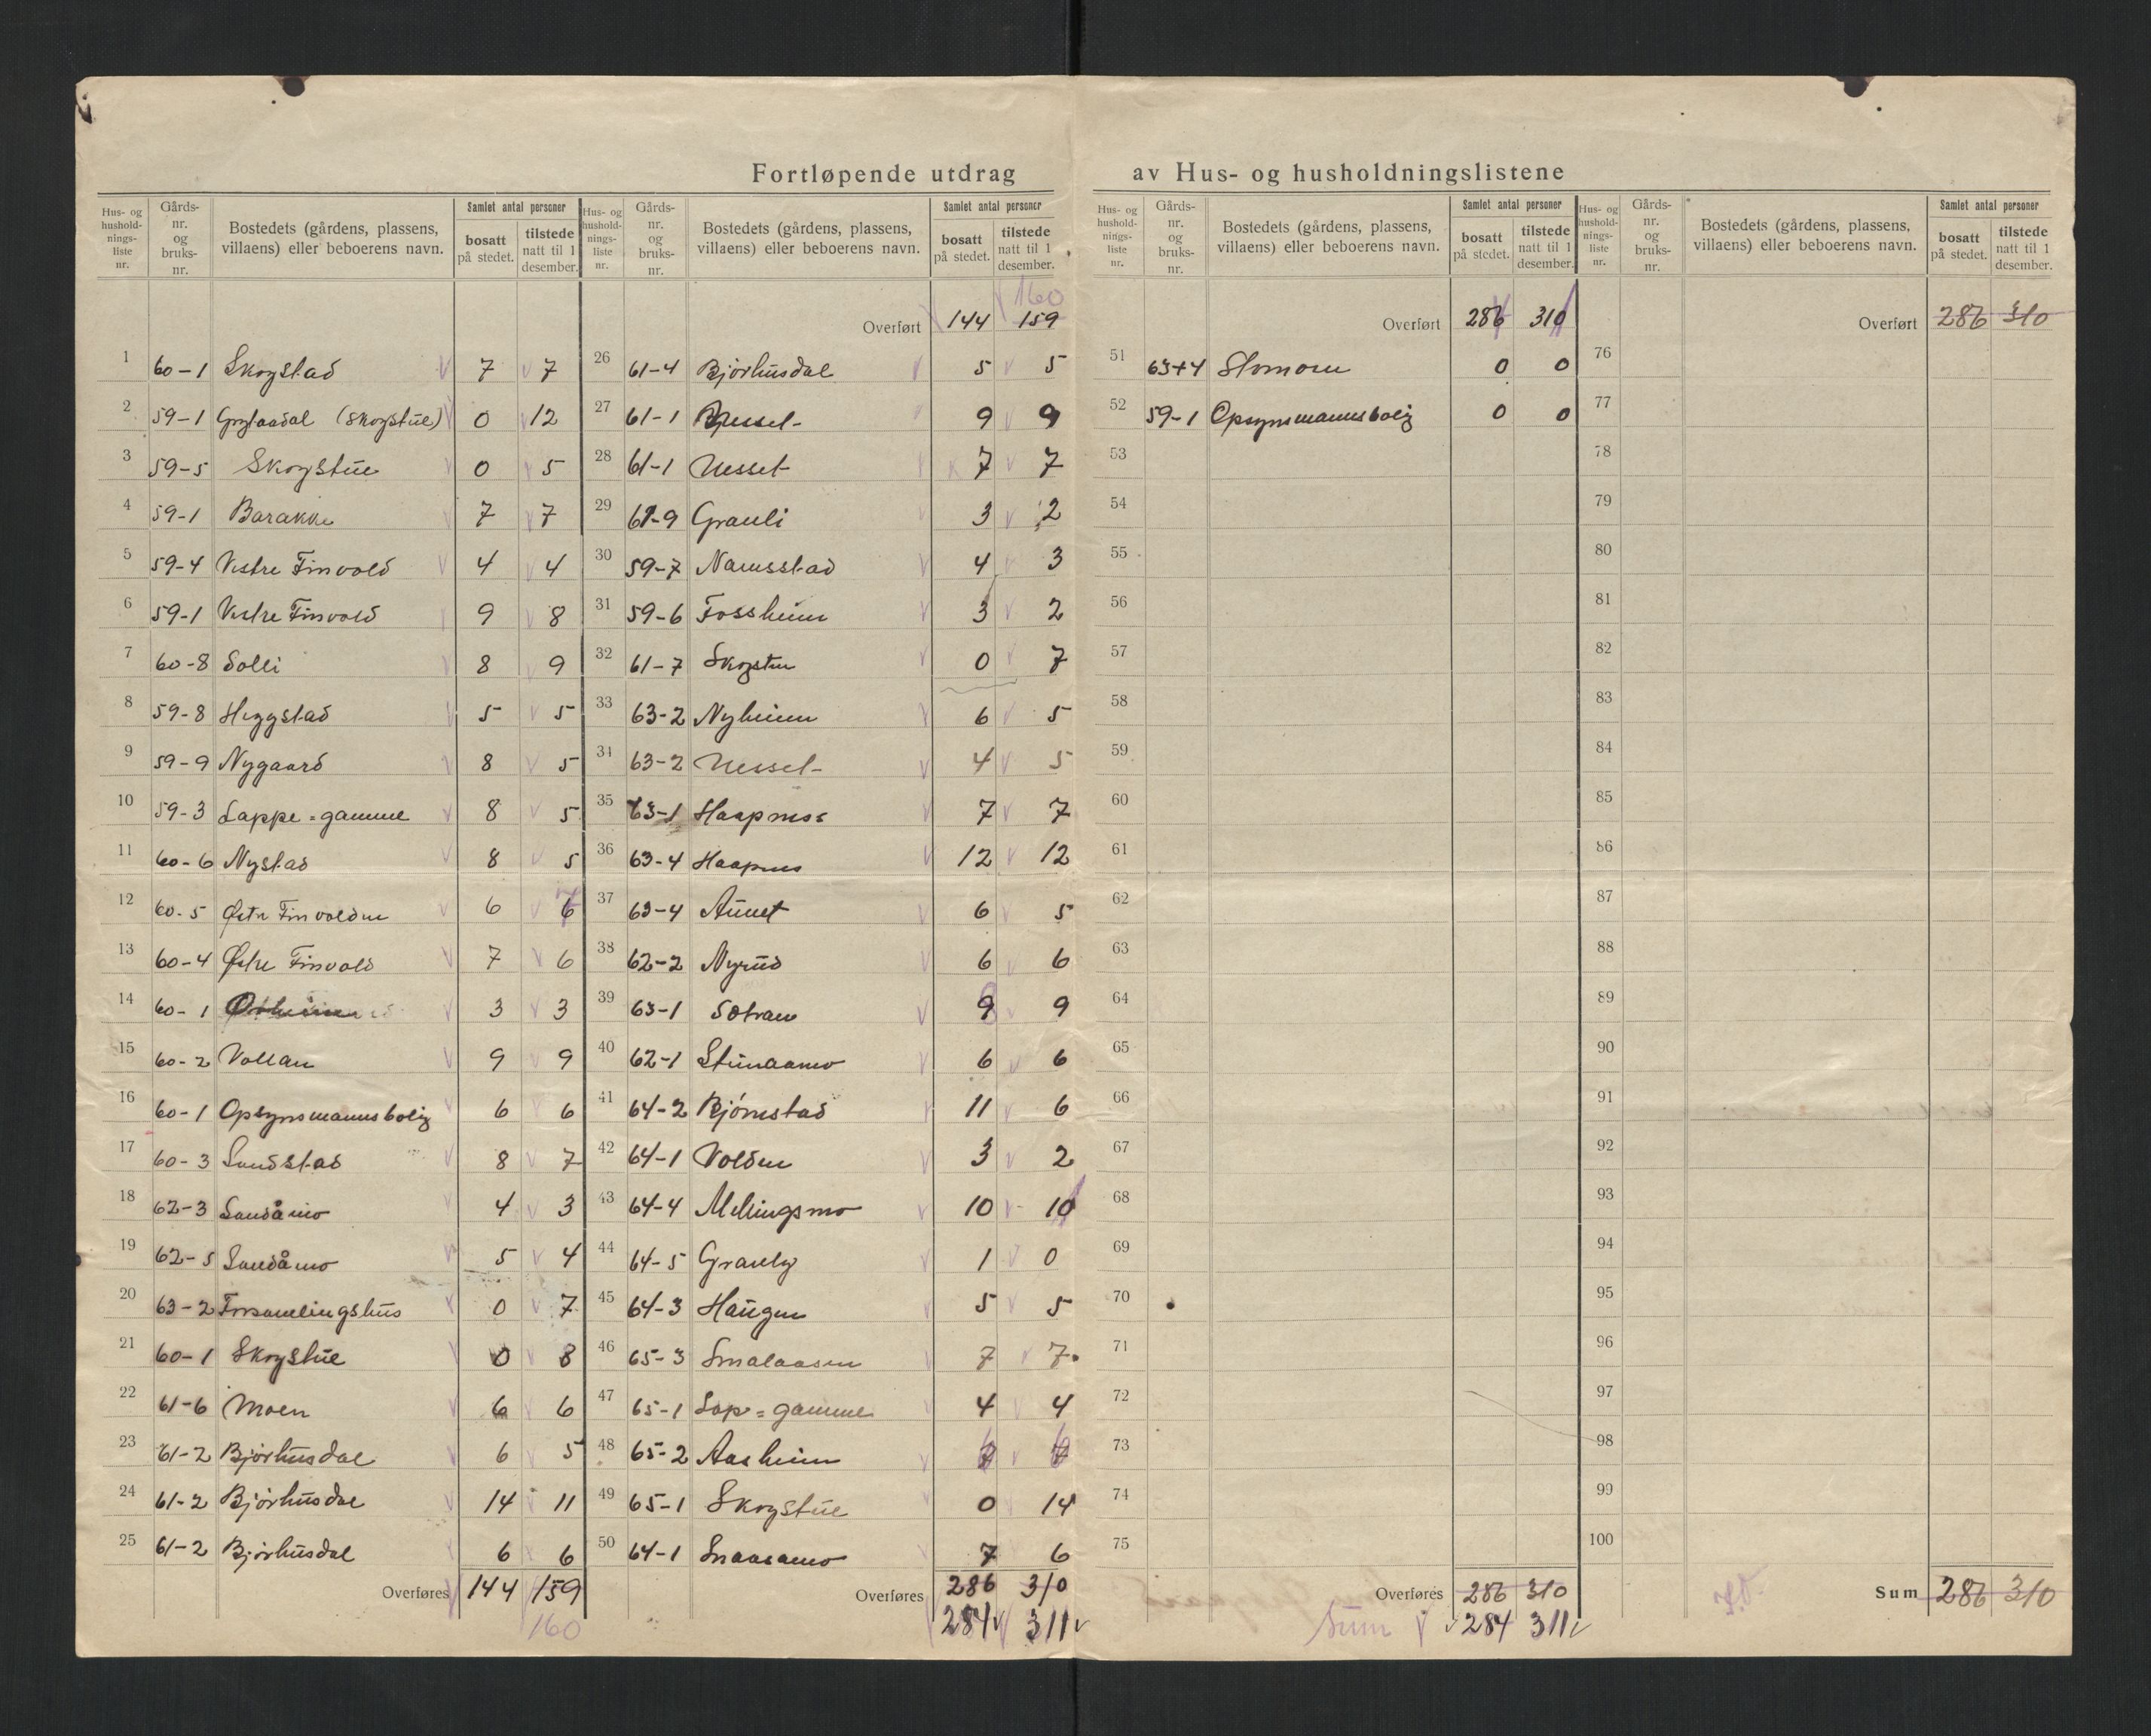 Fortløpende utdrag av Hus- og husholdningslistene
Hus- og hushold- nings- liste nr. | Gårds- nr. og bruks- nr. | Bostedets (gårdens, plassens, villaens) eller beboerens navn. | Samlet antal personer | bosatt på stedet. | tilstede natt til 1 desember.
1 60-1 Skogstad 7 7
2 59-1 Grytaadal (Skogstue) 0 12
3 59-5 Skogstue 0 5
4 59-1 Barakke 7 7
5 59-4 Vestre Finvold 4 4
6 59-1 Vestre Finvold 9 8
7 60-8 Solli 8 9
8 59-8 Heggstad 5 5
9 59-9 Nygaard 8 5
10 59-3 Lappe=gamme 8 5
11 60-6 Nystad 8 5
12 60-5 Østre Finvolden 6 6 7
13 60-4 Østre Finvold 7 6
14 60-1 3 3
15 60-2 Vollan 9 9
16 60-1 Opsynsmannsbolig 6 6
17 60-3 Sundstad 8 7
18 62-3 Sandåmo 4 3
19 62-5 Sandåmo 5 4
20 63-2 Forsamlingshus 0 7
21 60-1 Skogstue 0 8
22 61-6 Moen 6 6
23 61-2 Bjørhusdal 6 5
24 61-2 Bjørhusdal 14 11
25 61-2 Bjørhusdal 6 6
Overføres 144 159
160
Hus- og hushold- nings- liste nr. | Gårds- nr. og bruks- nr. | Bostedets (gårdens, plassens, villaens) eller beboerens navn. | Samlet antal personer | bosatt på stedet. | tilstede natt til 1 desember.
160
Overført 144 159
26 61-4 Bjørhusdal 5 5
27 61-1 9 9
28 61-1 Nesset 7 7
29 61-9 Granli 3 2
30 59-7 Namsstad 4 3
31 59-6 Fossheim 3 2
32 61-7 Skogstue 0 7
33 63-2 Nyheim 6 5
34 63-2 Nesset 4 5
35 63-1 Haapnes 7 7
36 63-4 Haapnes 12 12
37 63-4 Aunet 6 5
38 62-2 Nyrud 6 6
39 63-1 9 9
40 62-1 6 6
41 64-2 Bjørnstad 11 6
42 64-1 Volden 3 2
43 64-4 Mellingsmo 10 10
44 64-5 Granly 1 0
45 64-3 Haugen 5 5
46 65-3 Smalaasen 7 7
47 65-1 Lap=gamme 4 4
48 65-2 Aasheim
49 65-1 Skogstue 0 14
50 64-1 Snaasamo 7 6
Overføres 286 310
284 311
Hus- og hushold- nings- liste nr. | Gårds- nr. og bruks- nr. | Bostedets (gårdens, plassens, villaens) eller beboerens navn. | Samlet antal personer | bosatt på stedet. | tilstede natt til 1 desember.
Overført 286 310
51 63+4 0 0
52 59-1 Opsynsmannsbolig 0 0
53
54
55
56
57
58
59
60
61
62
63
64
65
66
67
68
69
70
71
72
73
74
75
Overføres 286 310
Sum 284 311
Hus- og hushold- nings- liste nr. | Gårds- nr. og bruks- nr. | Bostedets (gårdens, plassens, villaens) eller beboerens navn. | Samlet antal personer | bosatt på stedet. | tilstede natt til 1 desember.
Overført 286 310
76
77
78
79
80
81
82
83
84
85
86
87
88
89
90
91
92
93
94
95
96
97
98
99
100
Sum 286 310